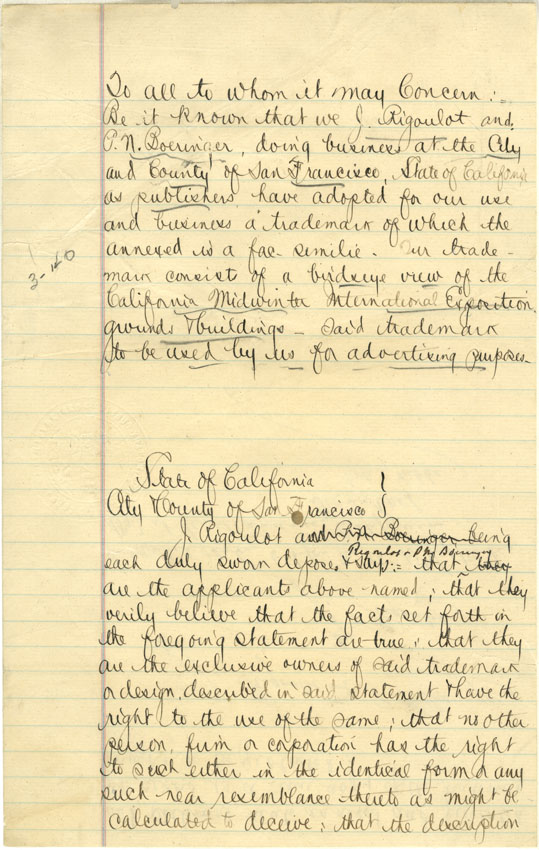 To all to whom it may Concern:-
Be it known that we J. Rigoulot and
P. N. Boeringer, doing business at the City
and County of San Francisco, State of California
as publishers have adopted for our use
and business a trademark of which the
annexed is a fac-similie. Our trade-
mark consist of a birdseye view of the
California Midwinter International Exposition
grounds & buildings - said trademark
to be used by us for advertising purposes-
3-40
State of California
City & County of San Francisco }
J. Rigoulot and Boeringer being
Rigoulot & P N Boeringer
each duly sworn deposes & says:- that they
are the applicants above named; that they
verily believe that the facts set forth in
the foregoing statement are true; that they
are the exclusive owners of said trademark
or design, described in said statement & have the
right to the use of the same; that no other
person, firm or corporation has the right
to such either in the identical form or any
such near resemblance thereto as might be
calculated to deceive; that the description